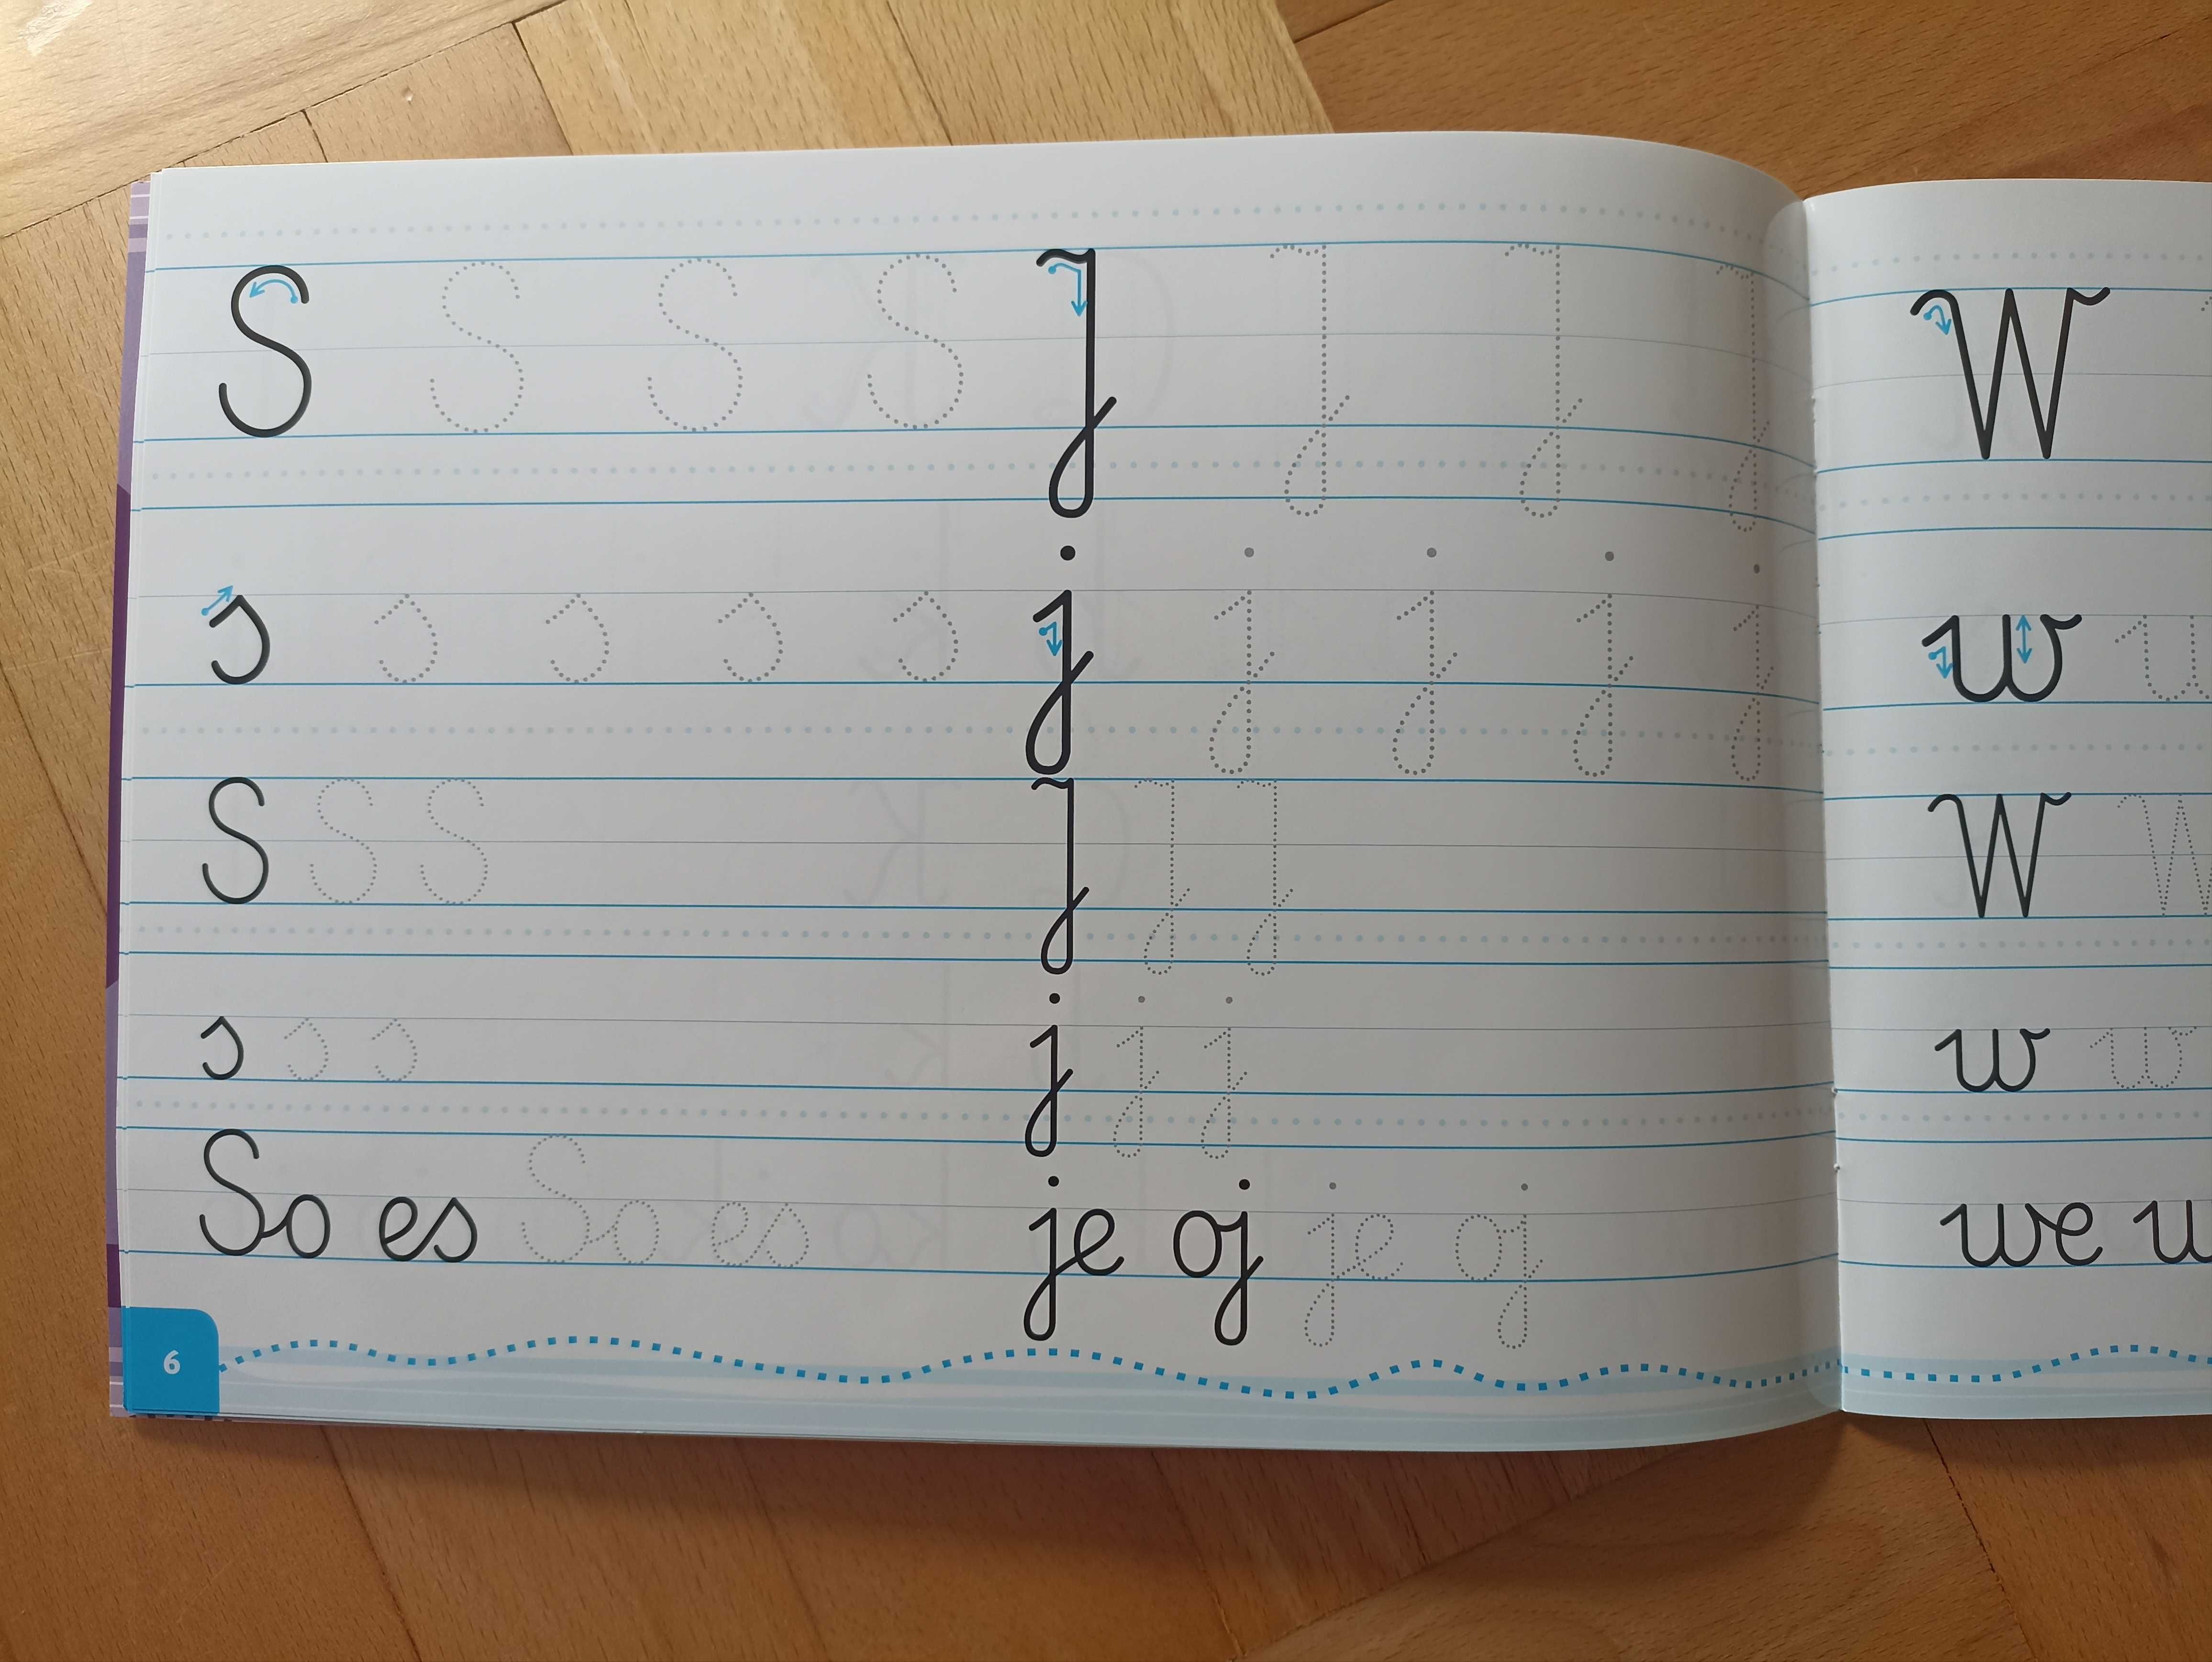 S S S S J J J J
s s s s s j j j j j
S S S J J J
s s s j j j
So es So es je oj je oj
6
W
w w
W W
w w
we